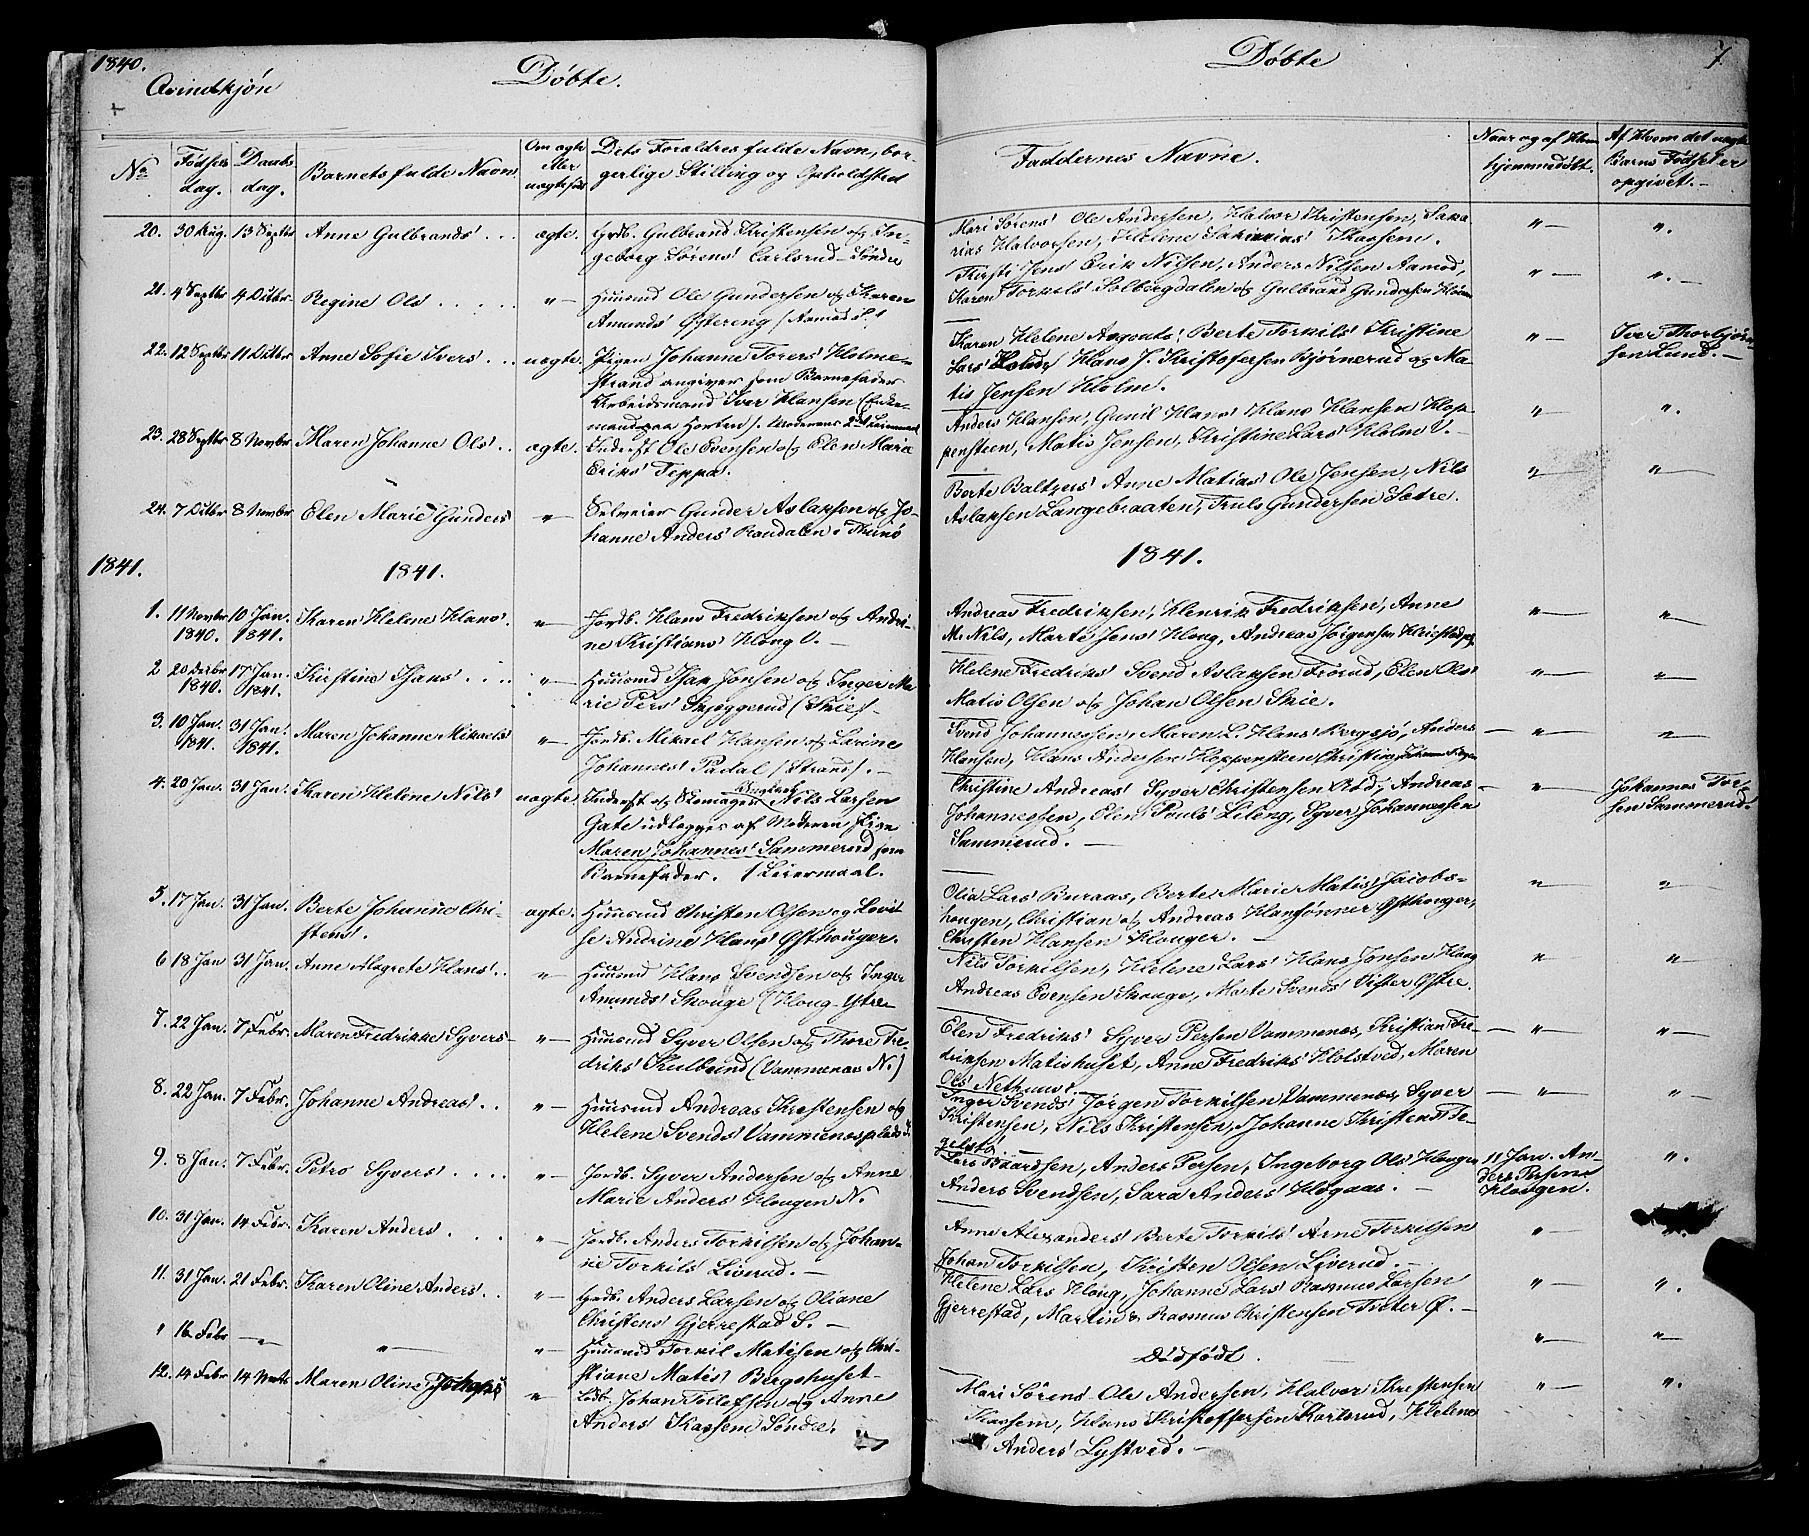 1840.
Qvindekjøn
Døbte.
No
Fødsels dag.
Daabs dag.
Barnets fulde Navn.
Om ægte eller uægte født
Dets Forældres fulde Navn, bor-
gerlige Stilling og Opholdsted
20. 30 Aug. 13 Septbr Anne Gulbrands' . . ægte. Grdb. Gulbrand Kristensen og In-
geborg Sørens' Carlsrud Søndre
21. 4 Septbr 4 Octbr Regine Ols' . . . . " Huusmd Ole Gundersen og Karen
Amunds' Østereng (Aamod S.)
22. 12 Septbr 11 Octbr Anne Sofie Ivers' . . uægte. Pigen Johanne Torers' Holme-
strand angiver som Barnefader
Arbeidsmand Iver Hansen
Horten). Moderens 2det Leiermaal
23. 28 Septbr 8 Novbr Maren Johanne Ols' . . ægte. Inderst Ole Evensen og Elen Marie
Eriks' Teppa.
24. 7 Octbr 8 Novbr Elen Marie Gunders' " Selveier Gunder Aslaksen og Jo-
hanne Anders' Raudalen i Thunø
1841. 1841.
1. 11 Novbr 1840. 10 Jan. 1841. Karen Helene Hans'. " Jordb. Hans Fredriksen og Andri-
ne Kristians' Houg O. —
2 20 Decbr 1840. 17 Jan. 1841. Kristine Isaks' . . . " Huusmd Isak Jonsen og Inger Ma-
rie Pers' Skyggerud (Skie). —
3. 10 Jan. 1841. 31 Jan. 1841. Maren Johanne Mikaels' " Jordb. Mikael Hansen og Larine
Johannes' Padal (Strand). —
4. 20 Jan. 31 Jan. Karen Helene Nils' uægte. Inderst og Skomager Nils Larsen
Gate udlægges af Moderen Pigen
Maren Johannes' Sammerud som
Barnefader. 1 Leiermaal.
5. 17 Jan. 31 Jan. Berte Johanne Chri-
stens'. ægte. Huusmd Christen Olsen og Lovi-
se Andrine Hans' Østhouger.
6 18 Jan 31 Jan. Anne Margrete Hans'. . " Huusmd Hans Svendsen og Inger
Amunds' Skouge (Houg Ytre —
7. 22 Jan. 7 Febr. Maren Fredrikke Syvers' — " Huusmd Syver Olsen og Thore Fre-
driks' Kulbrund (Vammenæs N.)
8. 22 Jan. 7 Febr. Johanne Andreas'. . " Huusmd Andreas Kristensen og
Helene Svends' Vammenæsplads S.
9. 8 Jan. 7 Febr. Petra Syvers' . . . " Jordb. Syver Andersen og Anne
Marie Anders' Hougen N.
10. 31 Jan. 14 Febr. Karen Anders'. . . . " Jordb. Anders Torkilsen og Johan-
ne Torkils' Liverud. —
11. 31 Jan. 21 Febr. Karen Oline Anders'. . " Grdb. Anders Larsen og Oliane
Christens' Gjerrestad S. —
" 16 Febr — " — " " Huusmd Torkil Matisen og Chri-
stiane Matis' Bergshuset
12. 14 Febr 14 Marts Maren Oline Johans' " Løsk. Johan Tollefsen og Anne
Anders' Kassem Søndre.
Døbte
7
Faddernes Navne.
Naar og af Hvem hjemmedøbt.
Af Hvem det uægte Barns Fødsel er opgivet. —
Mari Sørens' Ole Andersen, Halvor Kristensen, Saka-
rias Halvorsen, Helene Sakarias' Kassem. " — ".
Kirsti Jens' Erik Nilsen, Anders Nilsen Aamod,
Karen Torkils' Solbergdalen og Gulbrand Gundersen " — ". —
Karen Helene Augusts', Berte Torkils' Kristine
Lars' Hans J. Kristofersen Bjørnerud og Ma-
tis Jensen Holm. " — Iver Thorbjørn-
sen Lund. —
Anders Hansen, Gunil Hans' Hans Hansen Hop-
pensteen, Matis Jensen, Kristine Lars' Holm V. — " — ".
Berte Baltzers' Anne Matias' Ole Jensen, Nils
Aslaksen Langebraaten, Truls Gundersen Sætre. " — "
1841.
Andreas Fredriksen, Henrik Fredriksen, Anne
M. Nils', Marte Jens' Houg, Andreas Jørgensen " — "
Helene Fredriks' Svend Aslaksen Frørud, Elen Ols'
Matis Olsen og Johan Olsen Skie. " — "
Svend Johannessen, Maren L. Hans' Bergsjø, Anders
Hansen, Hans Andersen Hoppensteen Christine — " — "
Christine Andreas' Syver Christensen Rød, Andreas
Johannessen, Elen Pauls' Lileng, Syver Johannessen
Sammerud. — — " — Johannes Tor-
sen Sammerud.
Olia Lars' Buraas, Berte Marie Matis' Jacobs-
hougen, Christian og Andreas Hansønner Østhouger,
Christen Hansen Houger. — " — "
Nils Torkilsen, Helene Lars' Hans Jonsen Houg
Andreas Evensen Skouge, Marte Svends' Vister Østre. " "
Elen Fredriks' Syver Persen Vammenæs, Kristian Fre-
driksen Matishuset, Anne Fredriks' Holstved, Maren
Ols' — " — "
Inger Svends' Jørgen Torkilsen Vammenæs, Syver
Kristensen, Nils Kristensen, Johanne Kristens' Te-
gelsto. — — " — "
Lars Baardsen, Anders Persen, Ingeborg Ols' Hougen
Anders Svendsen, Sara Anders' Høgaas. — 11 Jan. An-
ders Persen
Hougen. ".
Anne Alexanders' Berte Torkils' Arne Torkilsen
Johan Torkilsen, Kristen Olsen Liverud. — " —
Helene Lars' Houg, Johanne Lars' Rasmus Larsen
Gjerrestad, Martin & Rasmus Christensen Treter Ø. — " — ".
Dødfødt. " — "
Mari Sørens' Ole Andersen, Halvor Kristensen
Kassem, Hans Kristoffersen Karlsrud, Helene
Anders' Lystved. — " — ".